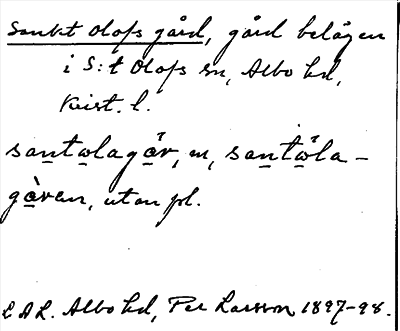 Sankt Olofs gård, gård belägen
i S:t Olofs sn, Albo hd,
Krist. l.
santolagår, m, santòla-
gàren, utan pl.
L A L. Albo hd, Per Larsson 1897-98.